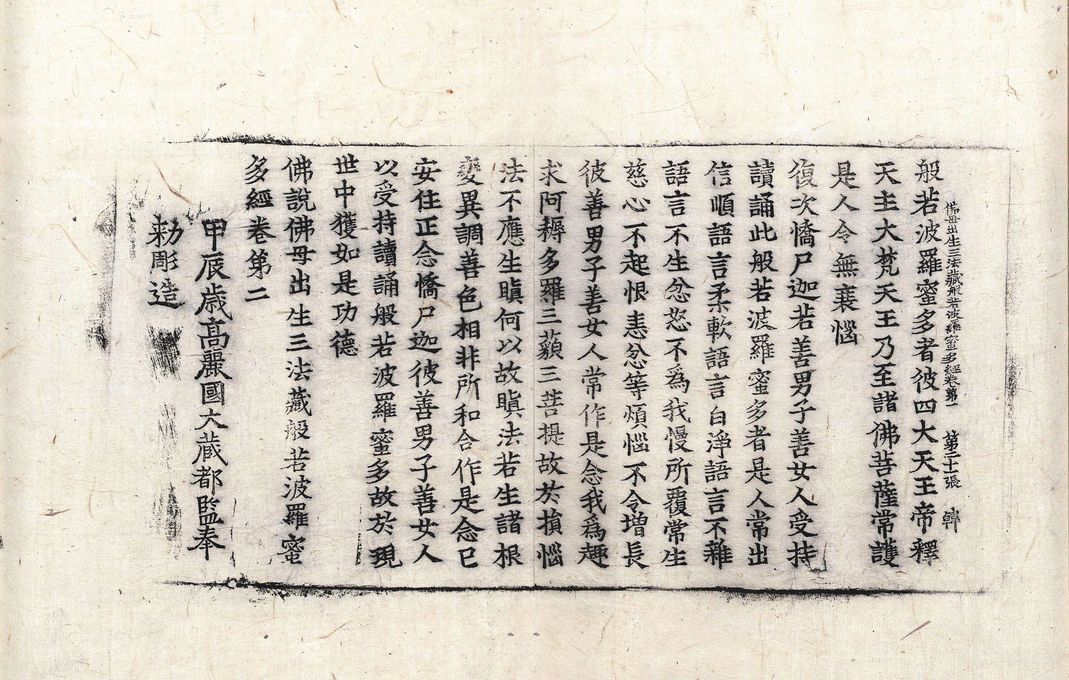 佛母出生三法藏般若波羅蜜多經卷第一 第二十張 鞸
般若波羅蜜多者彼四大天王帝釋
天主大梵天王乃至諸佛菩薩常護
是人令無衰惱
復次憍尸迦若善男子善女人受持
讀誦此般若波羅蜜多者是人常出
信順語言柔軟語言白淨語言不雜
語言不生忿怒不為我慢所覆常生
慈心不起恨恚忿等煩惱不令增長
彼善男子善女人常作是念我為趣
求阿耨多羅三藐三菩提故於損惱
法不應生瞋何以故瞋法若生諸根
變異調善色相非所和合作是念已
安住正念憍尸迦彼善男子善女人
以受持讀誦般若波羅蜜多故於現
世中獲如是功德
佛說佛母出生三法藏般若波羅蜜
多經卷第二
甲辰歲高麗國大藏都監奉
勅彫造